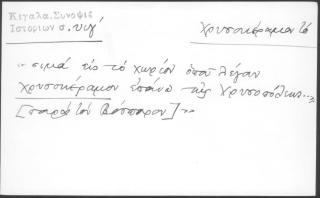 Κιγαλα, Συνοψις
Ιστοριων σ. υιγ´
Χρυσοκέραμον τό
„ σιμά εἰς τό χωρίον ὁποῦ λέγαν
χρυσοκέραμον ἐπάνω τῆς Χρυσοπόλεως...
[παρά τόν Βόσπορον] "